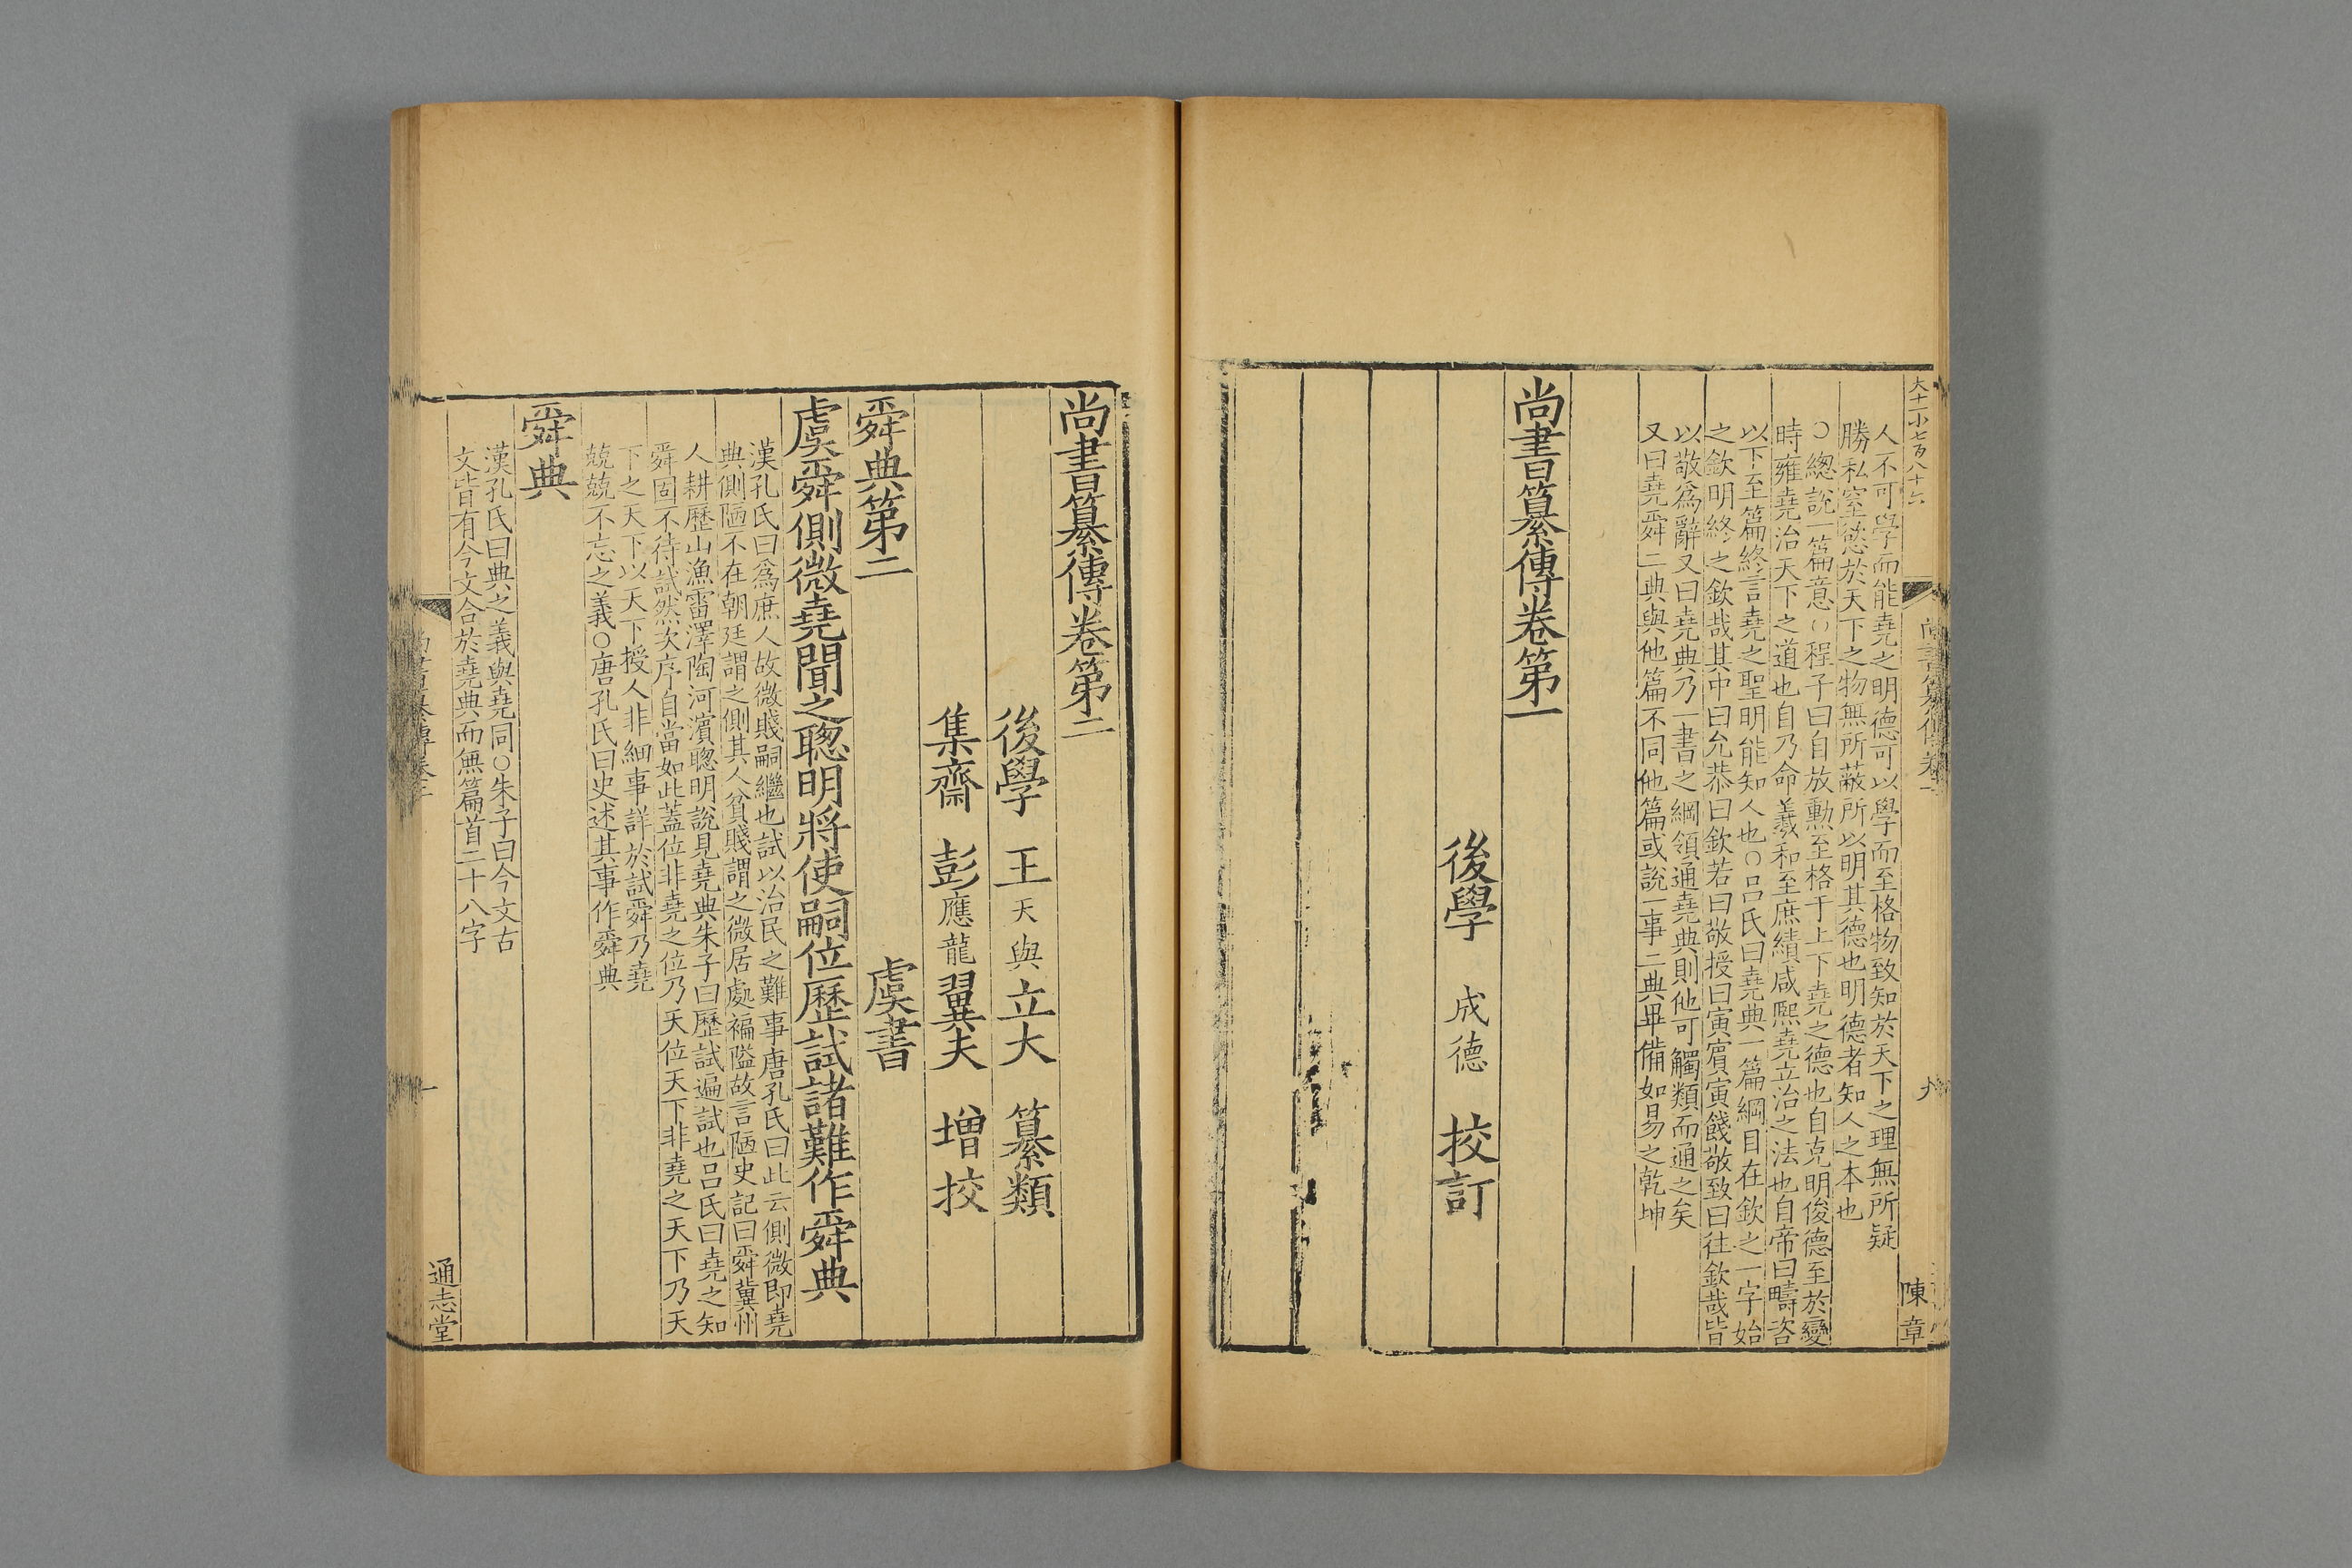 大十一小七百八十六
陳章
人不可學而能堯之明德可以學而至格物致知於天下之理無所疑
勝私窒慾於天下之物無所蔽所以明其德也明德者知人之本也
○總說一篇意○程子曰自放勲至格于上下堯之德也自克明俊德至於變
時雍堯治天下之道也自乃命羲和至庶績咸熈堯立治之法也自帝曰疇咨
以下至篇終言堯之聖明能知人也○呂氏曰堯典一篇綱目在欽之一字始
之欽明終之欽哉其中曰允恭曰欽若曰敬授曰寅賔寅餞敬致曰往欽哉皆
以敬爲辭又曰堯典乃一書之綱領通堯典則他可觸類而通之矣
又曰堯舜二典與他篇不同他篇或說一事二典畢備如易之乾坤
尚書纂傳卷第一
後學 成德 挍訂
尚書纂傳卷第二
後學 王天與立大 纂類
集齋 彭應龍翼夫 增挍
舜典第二 虞書
虞舜側微堯聞之聰明將使嗣位歷試諸難作舜典
漢孔氏曰爲庶人故微賤嗣繼也試以治民之難事唐孔氏曰此云側微即堯
典側陋不在朝廷謂之側其人貧賤謂之微居處褊隘故言陋史記曰舜冀州
人耕歷山漁雷澤陶河濱聰明說見堯典朱子曰歷試遍試也呂氏曰堯之知
舜固不待試然次序自當如此蓋位非堯之位乃天位天下非堯之天下乃天
下之天下以天下授人非細事詳於試舜乃堯
兢兢不忘之義○唐孔氏曰史述其事作舜典
舜典
漢孔氏曰典之義與堯同○朱子曰今文古
文皆有今文合於堯典而無篇首二十八字
尚書纂傳卷二
一
通志堂